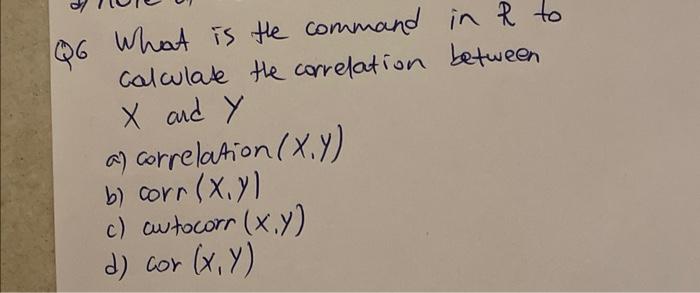 Q6 What is the command in R to
calculate the correlation between
X and Y
a) correlation (X,Y)
b) corr (X,Y)
c) autocorr (X,Y)
d) cor (X,Y)